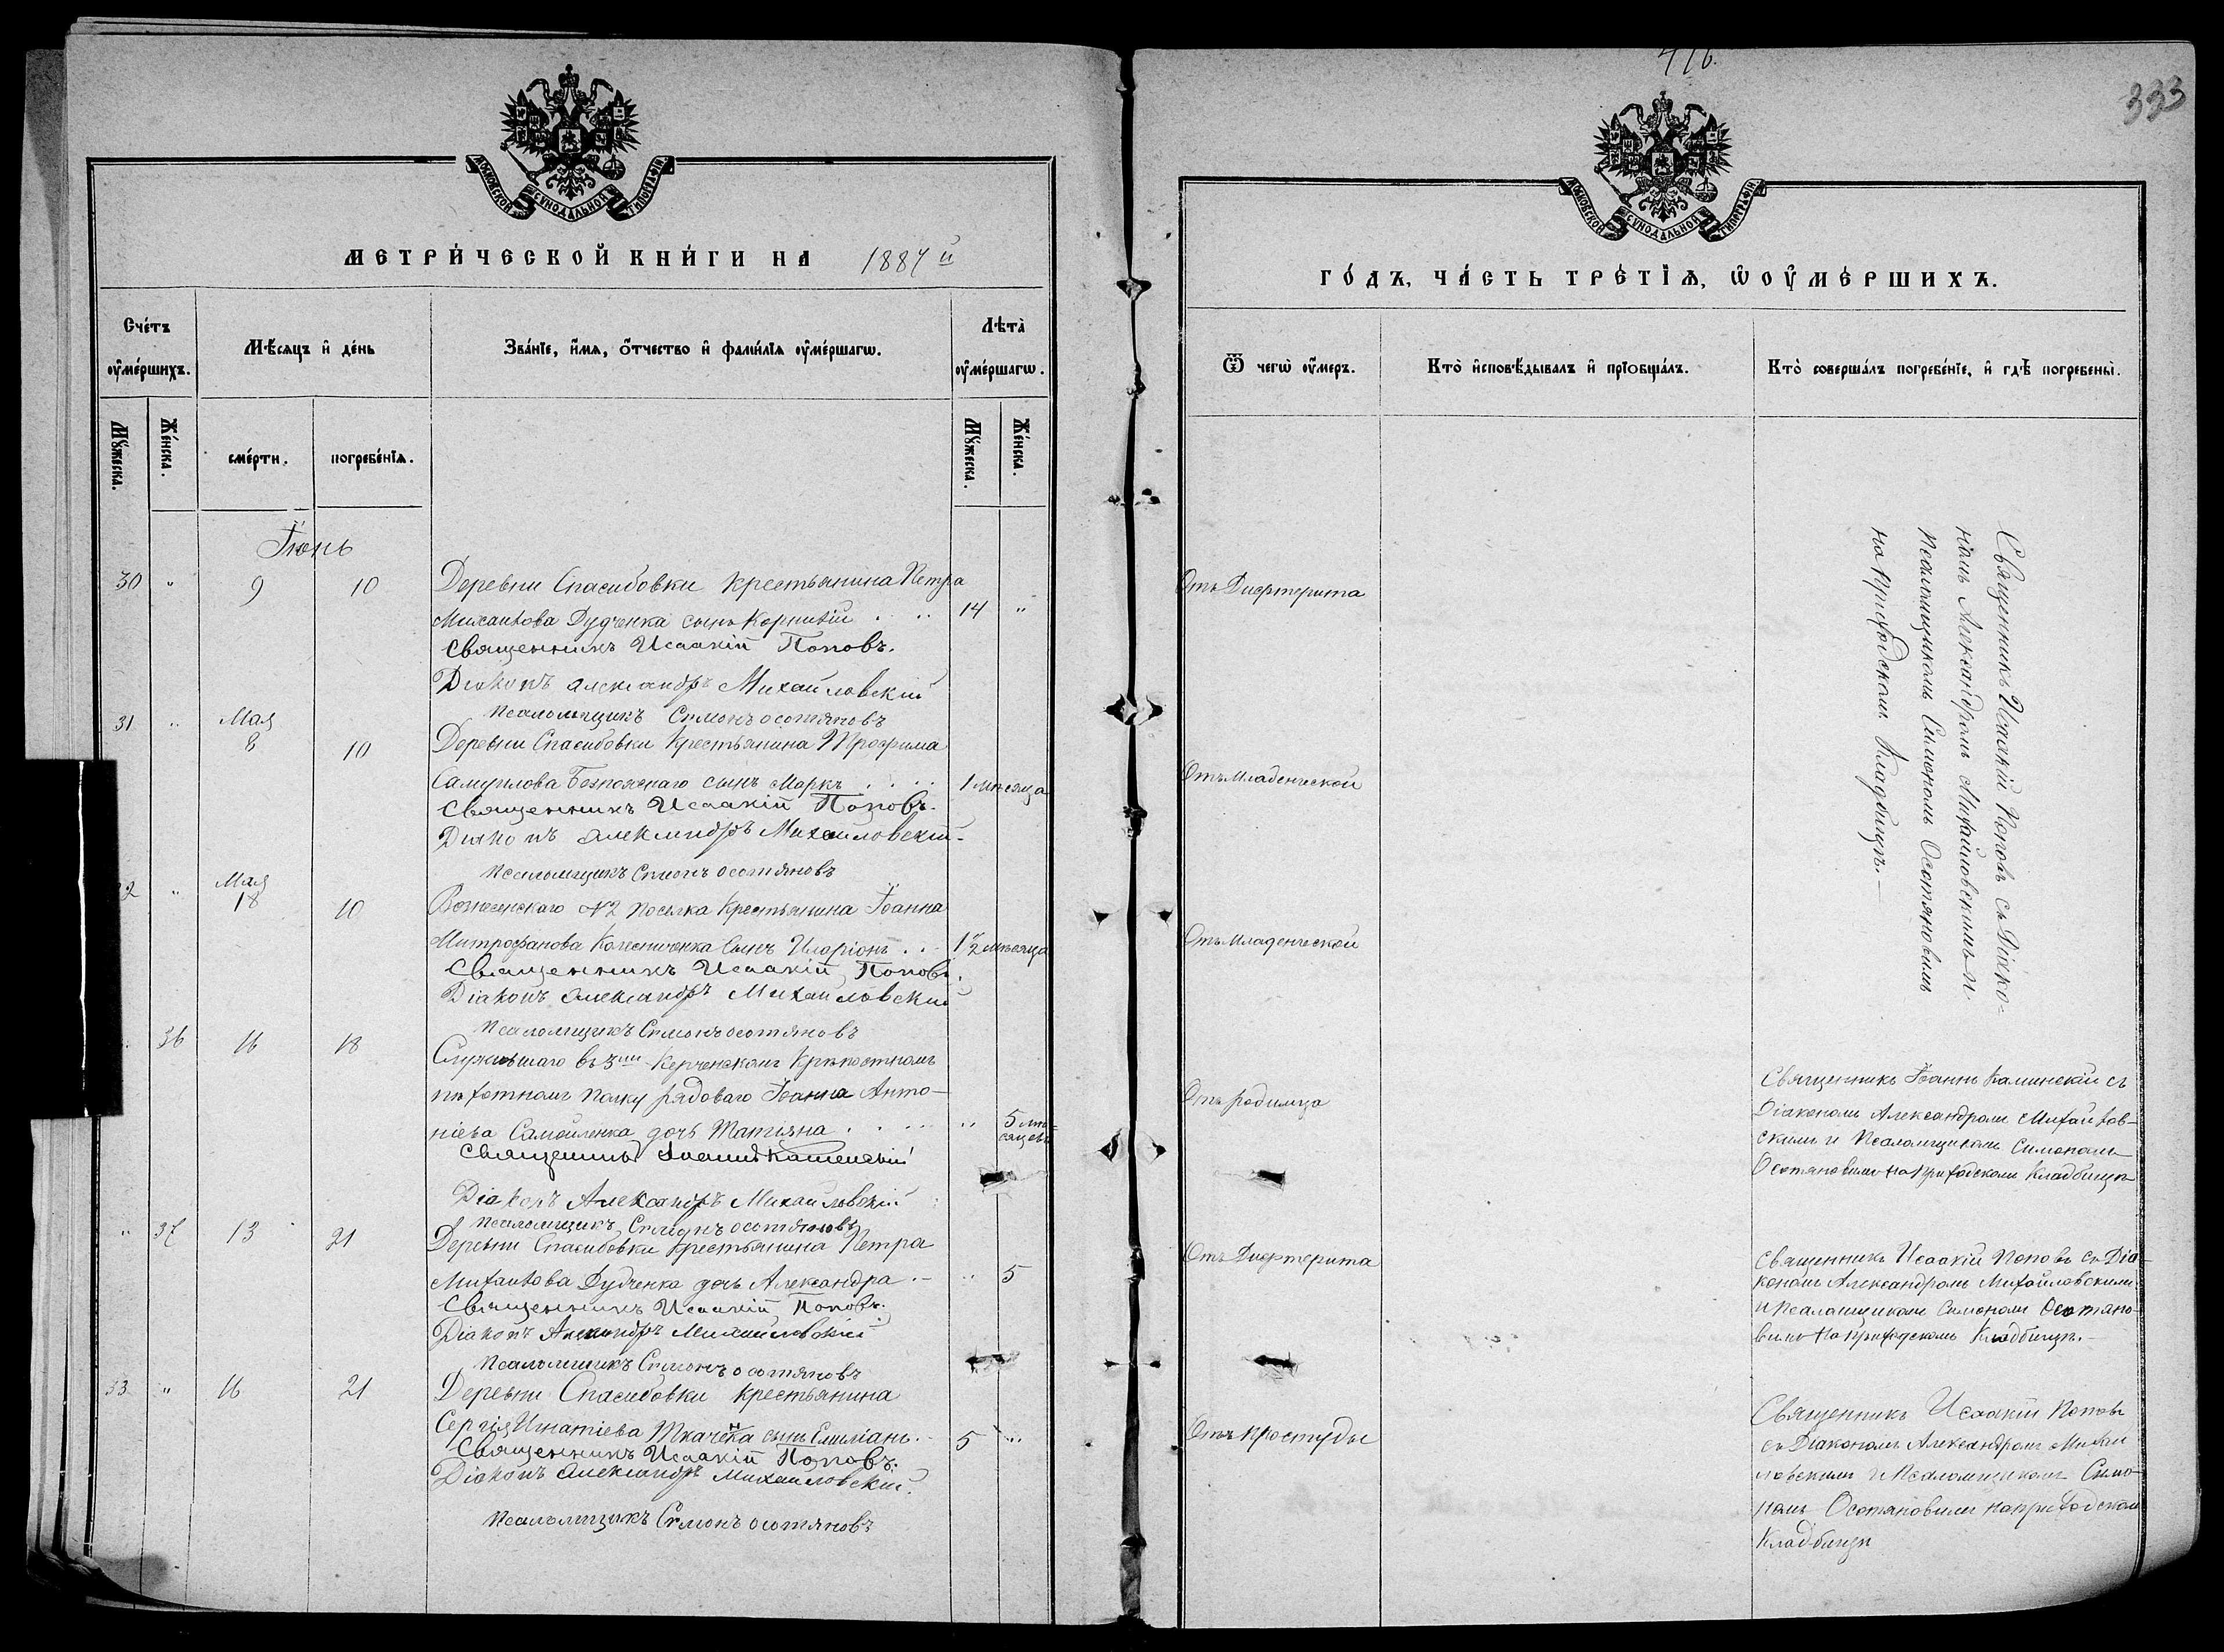 МОСКОВСКОЙ СѴНОДАЛЬНОЙ ТИПОГРАФІИ
МЕТРИ́ЧЕСКОЙ КНИ́ГИ НА 1884 й
Сче́тъ оу҆ме́ршихъ.
Мѣ́сяцъ и҆ де́нь
Зва́нїе, и҆́мѧ, ѻ҆́тчество и҆ фами́лїѧ оу҆ме́ршагѡ.
Лѣ́та оу҆ме́ршагѡ.
Мꙋ́жеска.
Же́нска.
сме́рти.
погребе́нїѧ.
Мꙋ́жеска.
Же́нска.
Іюнь
30 " 9 10 Деревни Спасибовки крестьянина Петра
Михаилова Дудченка сынъ Корнилій . . . 14 "
Священникъ Исаакій Поповъ.
Діаконъ Александръ Михайловскій
Псаломщикъ Симонъ Осотяновъ
31 " Мая 8 10 Деревни Спасибовки крестьянина Трофима
Самуилова Безпояснаго сынъ Маркъ . . . 1 мѣсяца
Священникъ Исаакій Поповъ.
Діаконъ Александръ Михайловскій
Псаломщикъ Симонъ Осотяновъ
32 " Мая 18 10 Вознесенскаго №2 поселка крестьянина Іоанна
Митрофанова Колесниченка сынъ Иларіонъ . . 1 1/2 мѣсяца
Священникъ Исаакій Поповъ.
Діаконъ Александръ Михайловскій
Псаломщикъ Симонъ Осотяновъ
36 16 18 Служившаго въ 3мъ Керченскомъ Крѣпостномъ
пѣхотномъ полку рядоваго Іоанна Анто-
ніева Самойленка дочь Татіяна . . . " 5 мѣ-
сяцевъ
Священникъ Іоаннъ Каминскій
Діаконъ Александръ Михайловскій
Псаломщикъ Симонъ Осотяновъ
" 37 13 21 Деревни Спасибовки крестьянина Петра
Михаилова Дудченка дочь Александра . — " 5
Священникъ Исаакій Поповъ.
Діаконъ Александръ Михайловскій
Псаломщикъ Симонъ Осотяновъ
33 " 16 21 Деревни Спасибовки крестьянина
Сергія Игнатіева Ткаченка сынъ Емиліанъ . 5 "
Священникъ Исаакій Поповъ.
Діаконъ Александръ Михайловскій.
Псаломщикъ Симонъ Осотяновъ
416.
333
МОСКОВСКОЙ СѴНОДАЛЬНОЙ ТИПОГРАФІИ
ГО́ДЪ, ЧА́СТЬ ТРЕ́ТЇѦ, Ѡ҆ ОУ҆МЕ́РШИХЪ.
Ѿ чегѡ̀ оу҆́меръ.
Кто̀ и҆сповѣ́дывалъ и҆ прїѡбща́лъ.
Кто̀ соверша́лъ погребе́нїе, и҆ гдѣ̀ погребены̀.
Отъ Дифтерита
Отъ Младенческой
Отъ Младенческой
Священникъ Исаакій Поповъ съ Діако-
номъ Александромъ Михайловскимъ и
Псаломщикомъ Симономъ Осотяновымъ
на приходскомъ кладбищѣ.—
Отъ родимца
Священникъ Іоаннъ Каминскій съ
Діакономъ Александромъ Михайлов-
скимъ и Псаломщикомъ Симономъ
Осотяновымъ на приходскомъ кладбищѣ
Отъ Дифтерита
Священникъ Исаакій Поповъ съ Діа-
кономъ Александромъ Михайловскимъ
и Псаломщикомъ Симономъ Осотяно-
вымъ на приходскомъ кладбищѣ.—
Отъ простуды
Священникъ Исаакій Поповъ
съ Діакономъ Александромъ Михай
ловскимъ и Псаломщикомъ Симо-
номъ Осотяновымъ на приходскомъ
кладбищѣ